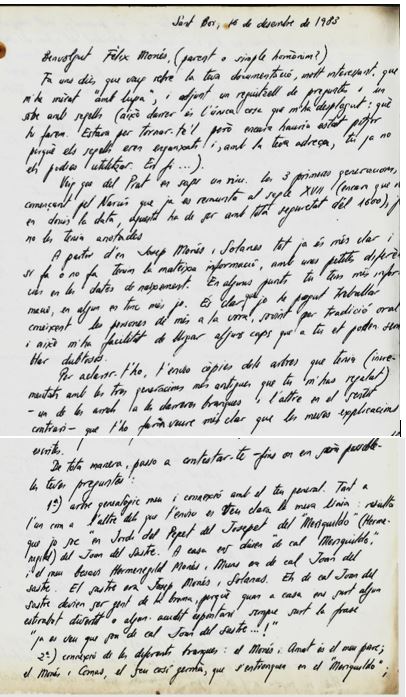 Sant Boi, 16 de desembre de 1983
Benvolgut Fèlix Monés, (parent o simple homònim?)
Fa uns dies que vaig rebre la teva documentació, molt interessant, que
m'he mirat "amb lupa", i adjunt un reguitzell de preguntes i un
sobre amb segells (això darrer és l'única cosa que m'ha desplagut: què
hi farem. Estava per tornar-te'l però encara hauria estat pitjor
perquè els segells eren enganxats i, amb la teva adreça, tu ja no
els podries utilitzar. En fi ...).
Veig que del Prat en saps un niu. Les 3 primeres generacions,
començant pel Narcís que ja es remunta al segle XVII (encara que no
en donis la data, aquesta ha de ser amb tota seguretat del 1600),
no les tenia anotades.
A partir d'en Josep Monés i Solanas tot ja és més clar i
si fa o no fa tenim la mateixa informació, amb unes petites diferèn-
cies en les dates de naixement. En alguns punts tu tens més infor-
mació, en algun en tinc més jo. És clar que jo he pogut treballar
coneixent les persones de més a la vora, sovint per tradició oral
i això m'ha facilitat de lligar alguns caps que a tu et poden sem-
blar dubtosos.
Per aclarir-t'ho, t'envio còpies dels arbres que tenia (incre-
mentats amb les tres generacions més antigues que tu m'has regalat)
- un de les arrels a les darreres branques i l'altre en el sentit
contrari - que t'ho faran veure més clar que les meves explicacions
escrites.
De tota manera, passo a contestar-te - fins on em serà possible -
les teves preguntes:
1ª) arbre genealògic meu i connexió amb el teu general. Tant a
l'un com a l'altre dels que t'envio es veu clara la meva línia: resulta
que jo sóc "en Jordi del Pepet del Josepet del "Meriguildo" (Herme-
negild) del Joan del Sastre. A casa en diuen "de cal Meriguildo",
i el meu besavi Hermenegild Monés i Muns era de cal Joan del
sastre. El sastre era Josep Monés i Solanas. Els de cal Joan del
sastre devien ser gent de la broma, perquè quan a casa ens surt algun
estirabot divertit o algun acudit espontani sempre surt la frase
"ja es veu que som de cal Joan del Sastre...!"
2ª) connexió de les diferents branques: el Monés i Amat és el meu pare;
el Monés i Comas, el seu cosí germà, que s'entronquen en el "Meriguildo";